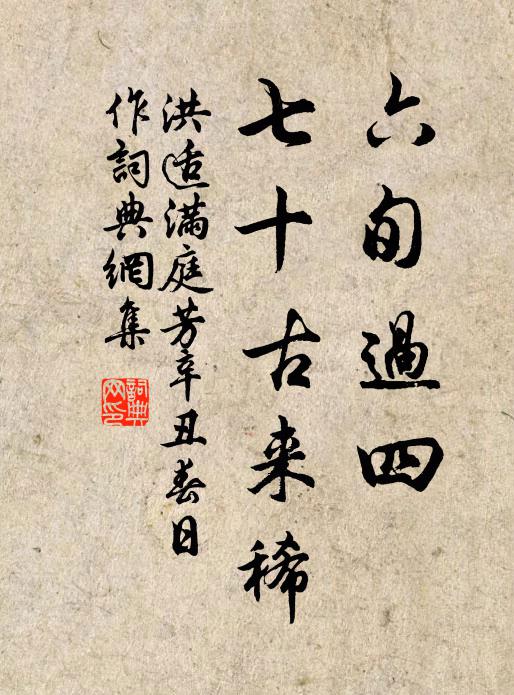 六旬過四
七十古来稀
洪适滿庭芳辛丑春日
作詞典網集
詞典
网印